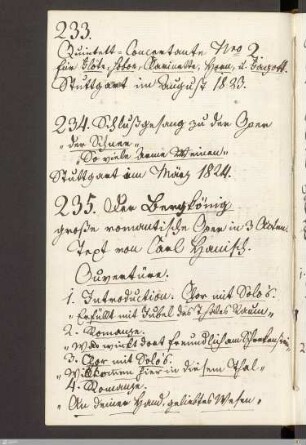 233.
Quintett-Concertante Nro 2
für Flöte, Hoboe, Clarinette, Horn, u. Fagott.
Stuttgart im August 1823.
234. Schlußgesang zu der Oper
"der Schnee"
"So viele Arme Weinen"
Stuttgart im März 1824.
235. Der Bergkönig
große romantische Oper in 3 Acten
Text von Carl Hanisch.
Ouverture.
1. Introduction. Chor mit Solo's.
"Erfüllt mit Jubel des Thales Raum"
2. Romanze.
"Was winkt dort freundlich am
3. Chor mit Solo's.
"Willkommen hier in diesem Thal"
4. Romanze.
"An deiner Hand, geliebtes Wesen"